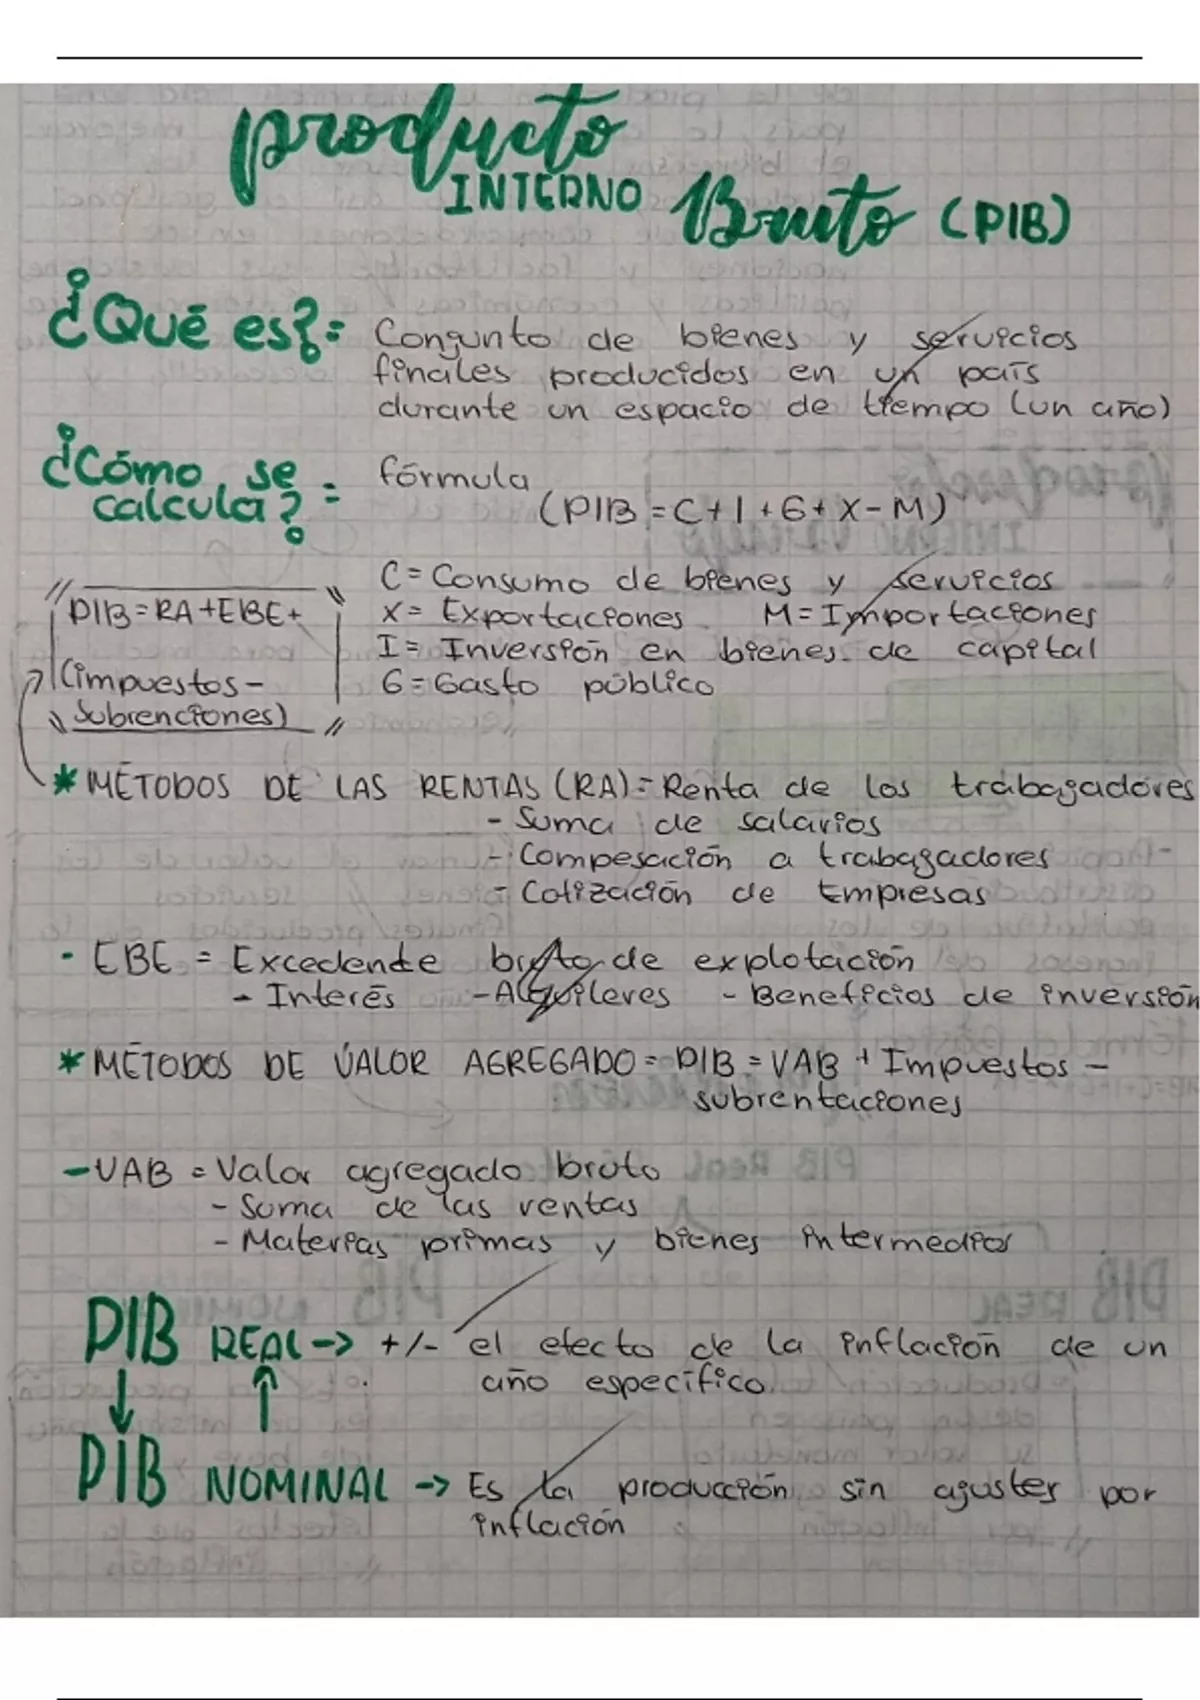 producto
INTERNO Bruto (PIB)
¿Qué es? = Conjunto de bienes y servicios
finales producidos en un país
durante un espacio de tiempo (un año)
¿Cómo se calcula? = fórmula
(PIB = C + I + G + X - M)
C = Consumo de bienes y servicios
X = Exportaciones M = Importaciones
I = Inversión en bienes de capital
G = Gasto público
PIB = RA + EBE +
(impuestos -
Subrenciones)
* MÉTODOS DE LAS RENTAS (RA) = Renta de los trabajadores
- Suma de salarios
- Compesación a trabajadores
- Cotización de Empresas
- EBE = Excedente bruto de explotación
- Interés - Alquileres - Beneficios de inversión
* MÉTODOS DE VALOR AGREGADO = PIB = VAB + Impuestos -
subrentaciones
- VAB = Valor agregado bruto
- Suma de las ventas
- Materias primas y bienes intermedios
PIB REAL -> +/- el efecto de la inflación de un
año específico.
PIB NOMINAL -> Es la producción sin ajuster por
inflación